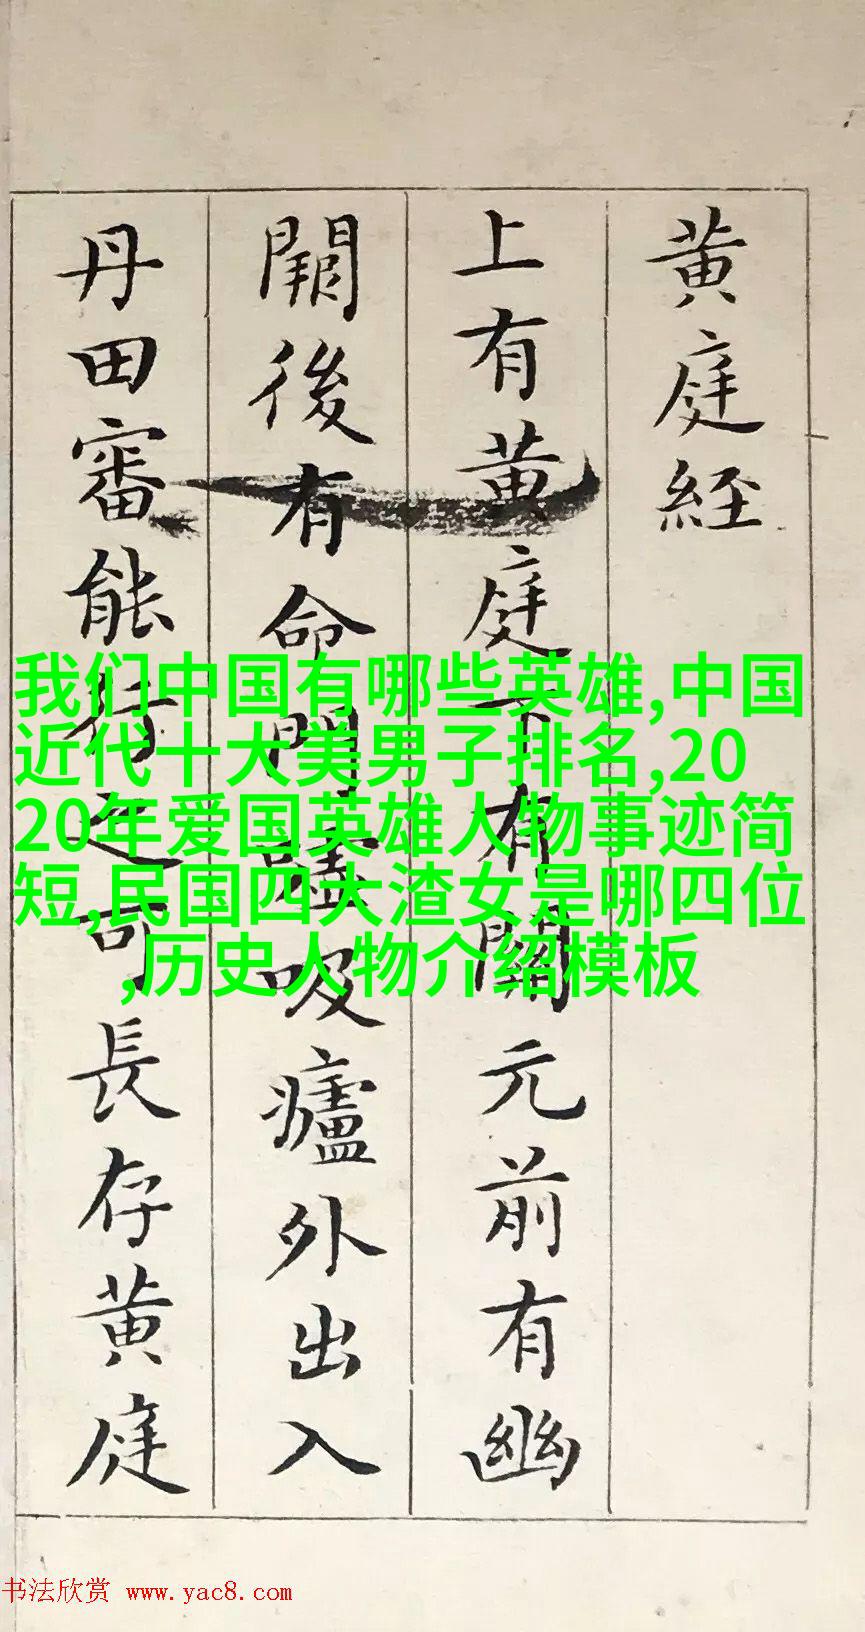 黄庭經
上有黄庭下有關元前有幽
闕後有命門嘘吸廬外出入
丹田審能行之可長存黄庭
我们中国有哪些英雄,中国
近代十大美男子排名,20
20年爱国英雄人物事迹简
短,民国四大渣女是哪四位
,历史人物介绍模板
书法欣赏 www.yac8.com